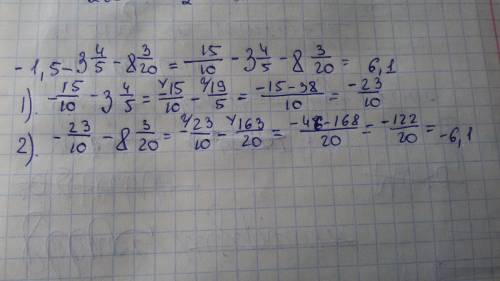 - 1,5 - 3 4/5 - 8 3/20 = - 15/10 - 3 4/5 - 8 3/20 = 6,1
1). - 15/10 - 3 4/5 = 15/10 - 19/5 = -15-38/10 = -23/10
2). - 23/10 - 8 3/20 = - 23/10 - 163/20 = -46-168/20 = -122/20 = -6,1